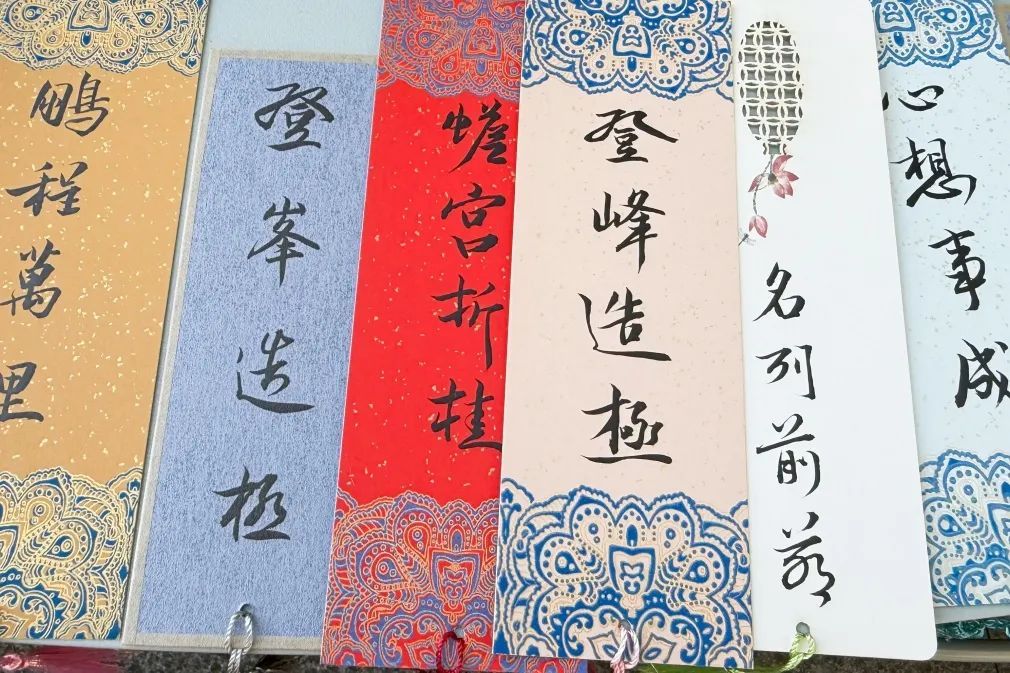 鵬程萬里
登峯造極
蟾宮折桂
登峰造極
名列前茅
心想事成